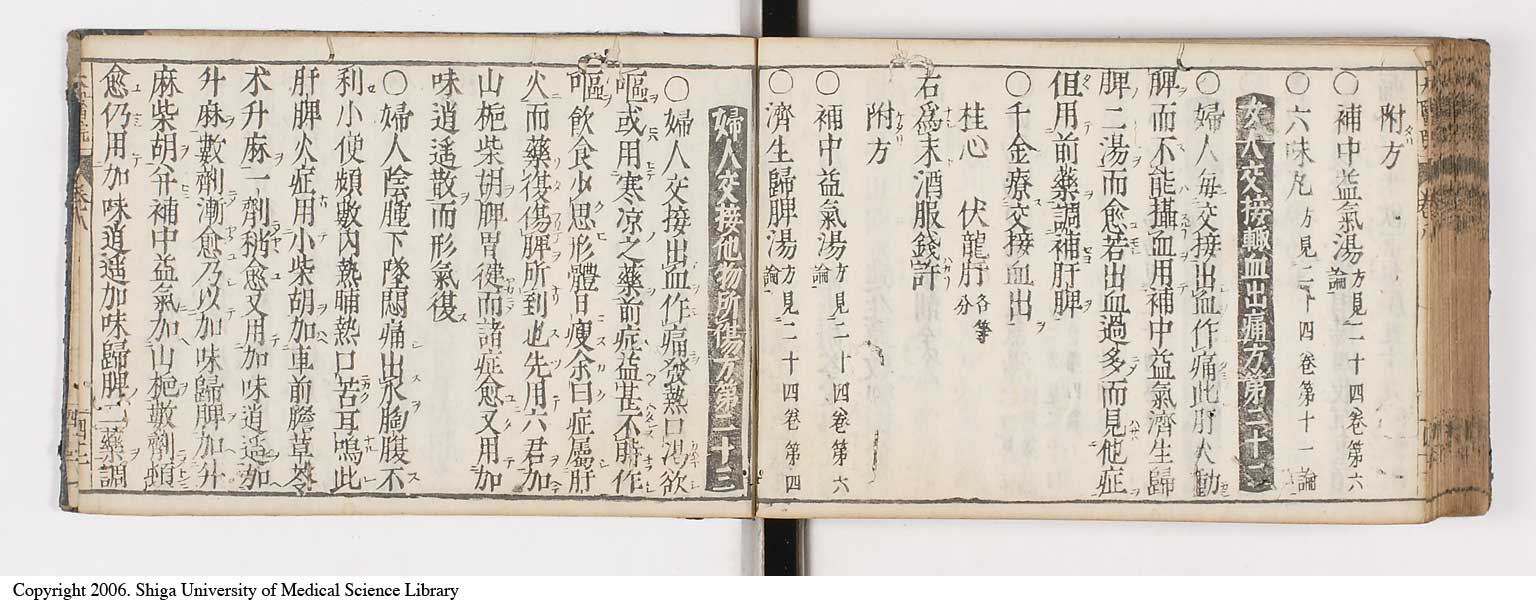 附方
○補中益氣湯方見二十四卷第六論
○六味丸方見二十四卷第十一論
女人交接輙血出痛方第二十二
○婦人每交接出血作痛此肝火動
脾而不能攝血用補中益氣濟生歸
脾二湯而愈若出血過多而見他症
但用前藥調補肝脾
○千金療交接血出
桂心 伏龍肝各等分
右爲末酒服錢許
附方
○補中益氣湯方見二十四卷第六論
○濟生歸脾湯方見二十四卷第四論
婦人交接他物所傷方第二十三
○婦人交接出血作痛發熱口渴欲
嘔或用寒凉之藥前症益甚不時作
嘔飲食少思形體日瘦余曰症屬肝
火而藥復傷脾所到也先用六君加
山梔柴胡脾胃健而諸症愈又用加
味逍遙散而形氣復
○婦人陰腫下墜悶痛出水胸腹不
利小便頻數內熱晡熱口苦耳鳴此
肝脾火症用小柴胡加車前膽草苓
朮升麻一劑稍愈又用加味逍遙加
升麻數劑漸愈乃以加味歸脾加升
麻柴胡并補中益氣加山梔數劑頓
愈仍用加味逍遙加味歸脾二藥調
Copyright 2006. Shiga University of Medical Science Library